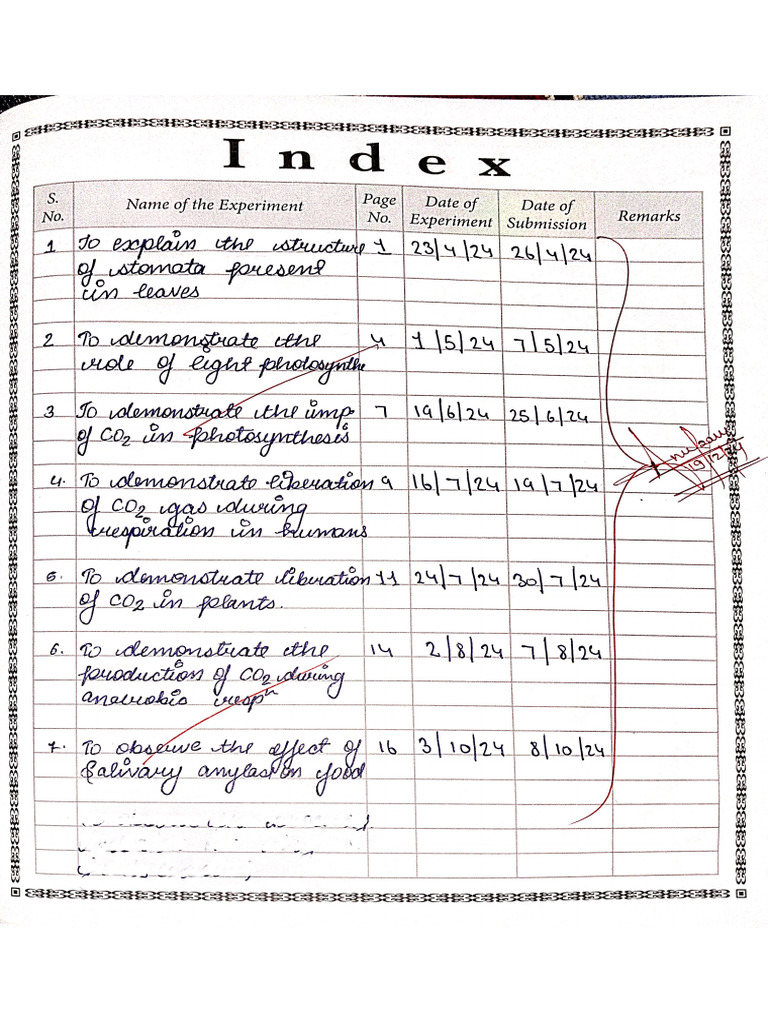 Index
S. No. Name of the Experiment Page No. Date of Experiment Date of Submission Remarks
1 To explain the structure 1 23/4/24 26/4/24
of stomata present
in leaves
2 To demonstrate the 4 1/5/24 7/5/24
role of light photosynthe
3. To demonstrate the imp. 7 19/6/24 25/6/24
of CO2 in photosynthesis
4. To demonstrate liberation 9 16/7/24 19/7/24
of CO2 gas during
respiration in humans
5. To demonstrate liberation 11 24/7/24 30/7/24
of CO2 in plants.
6. To demonstrate the 14 2/8/24 7/8/24
production of CO2 during
anaerobic respⁿ
7. To observe the effect of 16 3/10/24 8/10/24
Salivary anylas on food